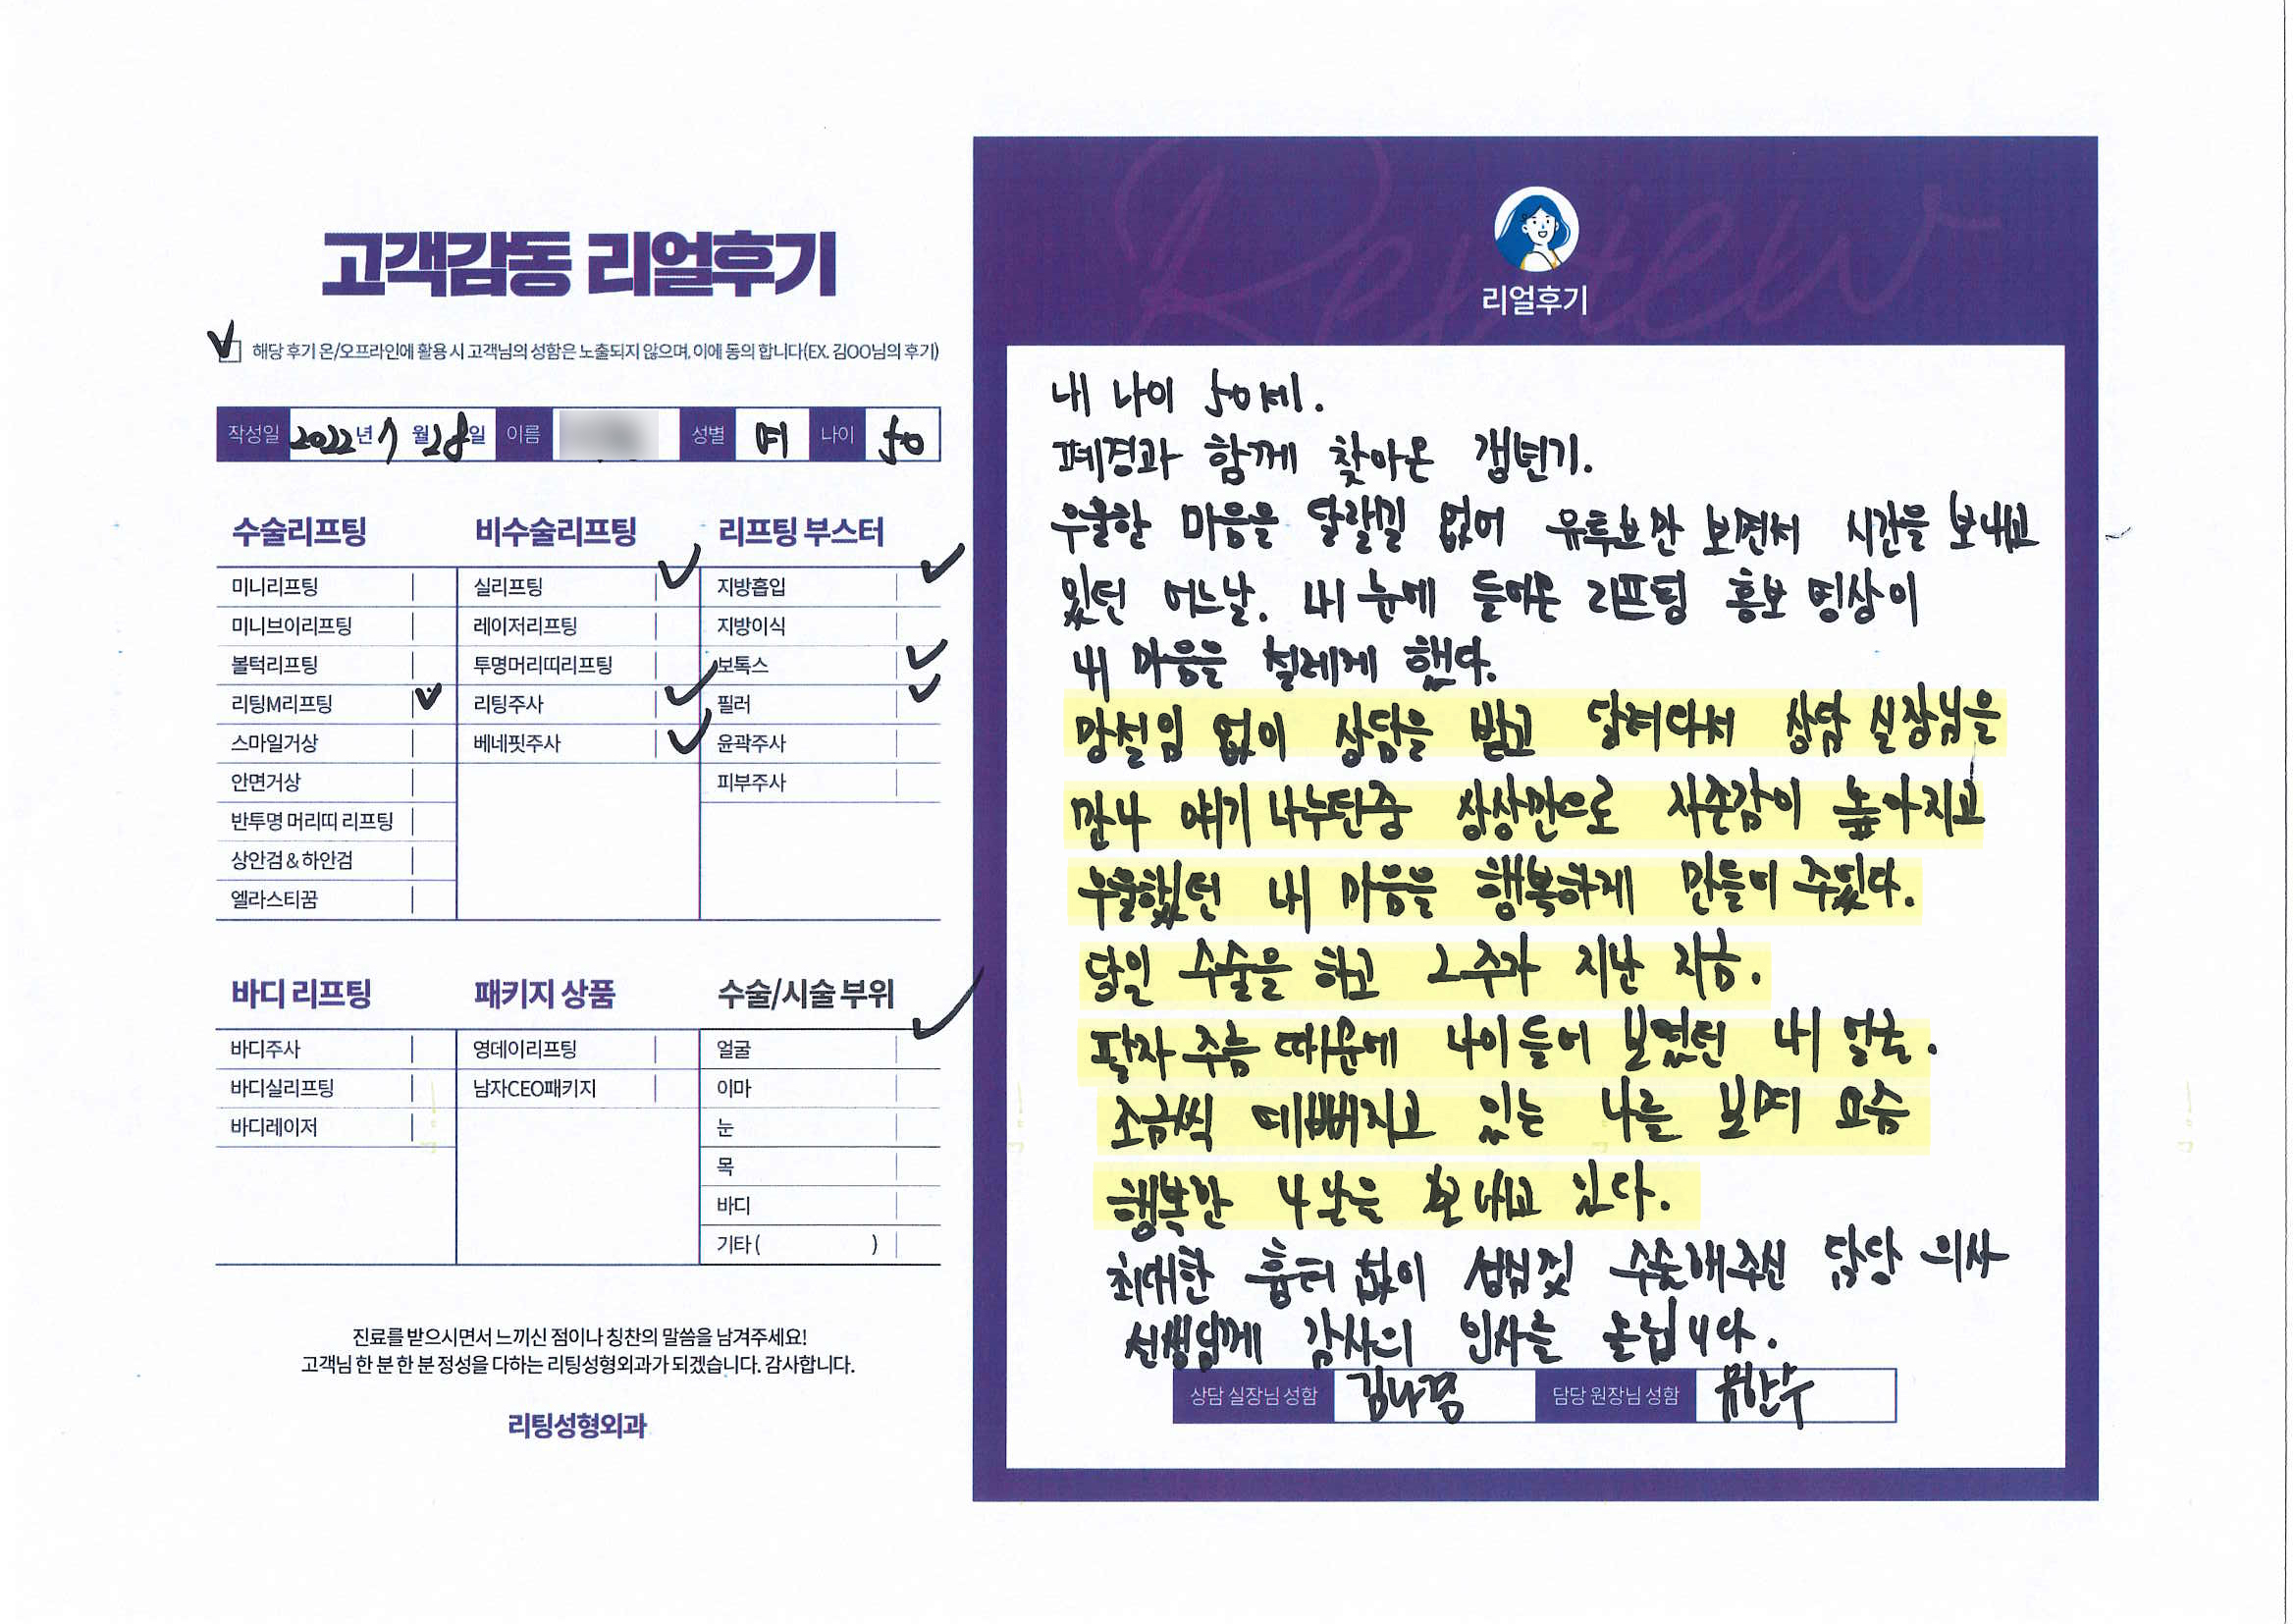 고객감동 리얼후기
해당 후기 온/오프라인에 활용 시 고객님의 성함은 노출되지 않으며, 이에 동의 합니다(EX. 김OO님의 후기)
작성일 2022년 7월 28일 이름 성별 여 나이 50
수술리프팅
미니리프팅
미니브이리프팅
볼턱리프팅
리팅M리프팅
스마일거상
안면거상
반투명 머리띠 리프팅
상안검&하안검
엘라스티꿈
비수술리프팅
실리프팅
레이저리프팅
투명머리띠리프팅
리팅주사
베네핏주사
리프팅 부스터
지방흡입
지방이식
보톡스
필러
윤곽주사
피부주사
바디 리프팅
바디주사
바디실리프팅
바디레이저
패키지 상품
영데이리프팅
남자CEO패키지
수술/시술 부위
얼굴
이마
눈
목
바디
기타 ( )
진료를 받으시면서 느끼신 점이나 칭찬의 말씀을 남겨주세요!
고객님 한 분 한 분 정성을 다하는 리팅성형외과가 되겠습니다. 감사합니다.
리팅성형외과
Review
리얼후기
내 나이 50세.
폐경과 함께 찾아온 갱년기.
우울한 마음을 달랠길 없어 유투브만 보면서 시간을 보내고
있던 어느날. 내 눈에 들어온 리프팅 홍보 영상이
내 마음을 설레게 했다.
망설임 없이 상담을 받고 달려가서 상담 실장님을
만나 얘기 나누던중 상상만으로 자존감이 높아지고
우울했던 내 마음을 행복하게 만들어 주었다.
당일 수술을 하고 2주가 지난 지금.
팔자 주름 때문에 나이 들어 보였던 내 얼굴.
조금씩 예뻐지고 있는 나를 보며 요즘
행복한 나날을 보내고 있다.
최대한 흉터 없이 성심껏 수술해주신 담당 의사
선생님께 감사의 인사를 올립니다.
상담 실장님 성함 김나경 담당 원장님 성함 유한수